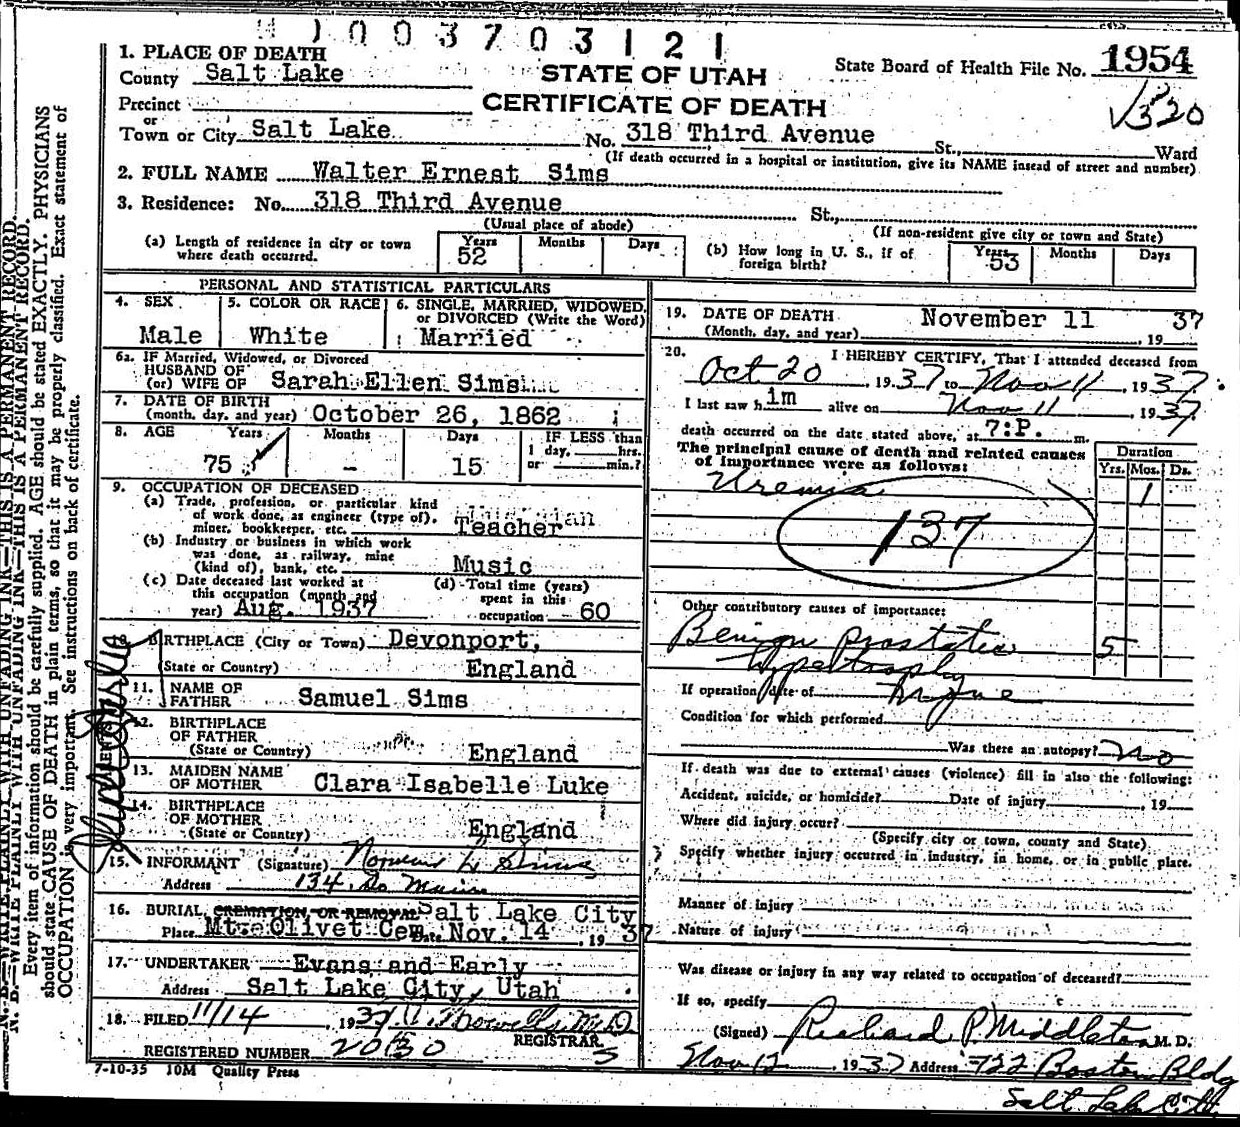 1003703121
1. PLACE OF DEATH
County Salt Lake
STATE OF UTAH
State Board of Health File No. 1954
Precinct
CERTIFICATE OF DEATH
320
or
Town or City Salt Lake No. 318 Third Avenue St., Ward
(If death occurred in a hospital or institution, give its NAME insead of street and number)
2. FULL NAME Walter Ernest Sims
3. Residence: No. 318 Third Avenue St.,
(Usual place of abode) (If non-resident give city or town and State)
(a) Length of residence in city or town where death occurred. Years 52 Months Days
(b) How long in U. S., if of foreign birth? Years 53 Months Days
PERSONAL AND STATISTICAL PARTICULARS
4. SEX Male
5. COLOR OR RACE White
6. SINGLE, MARRIED, WIDOWED, or DIVORCED (Write the Word) Married
6a. IF Married, Widowed, or Divorced
HUSBAND OF
(or) WIFE OF Sarah Ellen Sims
7. DATE OF BIRTH
(month, day, and year) October 26, 1862
8. AGE Years 75 Months - Days 15 IF LESS than 1 day, hrs. or min.?
9. OCCUPATION OF DECEASED
(a) Trade, profession, or particular kind
of work done, as engineer (type of),
miner, bookkeeper, etc. Teacher
(b) Industry or business in which work
was done, as railway, mine
(kind of), bank, etc. Music
(c) Date deceased last worked at
this occupation (month and
year) Aug. 1937
(d) Total time (years)
spent in this
occupation 60
10. BIRTHPLACE (City or Town) Devonport,
(State or Country) England
11. NAME OF FATHER Samuel Sims
12. BIRTHPLACE OF FATHER
(State or Country) England
13. MAIDEN NAME OF MOTHER Clara Isabelle Luke
14. BIRTHPLACE OF MOTHER
(State or Country) England
PARENTS
15. INFORMANT (Signature) Norman L Sims
Address 134 So Main
16. BURIAL, CREMATION, OR REMOVAL Salt Lake City
Place Mt. Olivet Cem. Date Nov. 14, 1937
17. UNDERTAKER Evans and Early
Address Salt Lake City, Utah
18. FILED 11/14 1937 M.D.
REGISTRAR
REGISTERED NUMBER
7-10-35 10M Quality Press
19. DATE OF DEATH November 11 37
(Month, day, and year) , 19
20. I HEREBY CERTIFY, That I attended deceased from
Oct 20, 1937 to Nov 11, 1937.
I last saw him alive on Nov 11, 1937.
death occurred on the date stated above, at 7:P. m.
The principal cause of death and related causes
of importance were as follows:
Duration
Yrs. Mos. Ds.
Uremia 1
137
Other contributory causes of importance:
Benign prostatic 5
hypertrophy
If operation, date of None
Condition for which performed
Was there an autopsy? No
If death was due to external causes (violence) fill in also the following:
Accident, suicide, or homicide? Date of injury , 19
Where did injury occur?
(Specify city or town, county and State)
Specify whether injury occurred in industry, in home, or in public place.
Manner of injury
Nature of injury
Was disease or injury in any way related to occupation of deceased?
If so, specify
(Signed) Richard P. Middleton M. D.
Nov 12 1937 Address 722 Boston Bldg
Salt Lake City
N. B.—WRITE PLAINLY WITH UNFADING INK—THIS IS A PERMANENT RECORD.
Every item of information should be carefully supplied. AGE should be stated EXACTLY. PHYSICIANS
should state CAUSE OF DEATH in plain terms, so that it may be properly classified. Exact statement of
OCCUPATION is very important. See instructions on back of certificate.